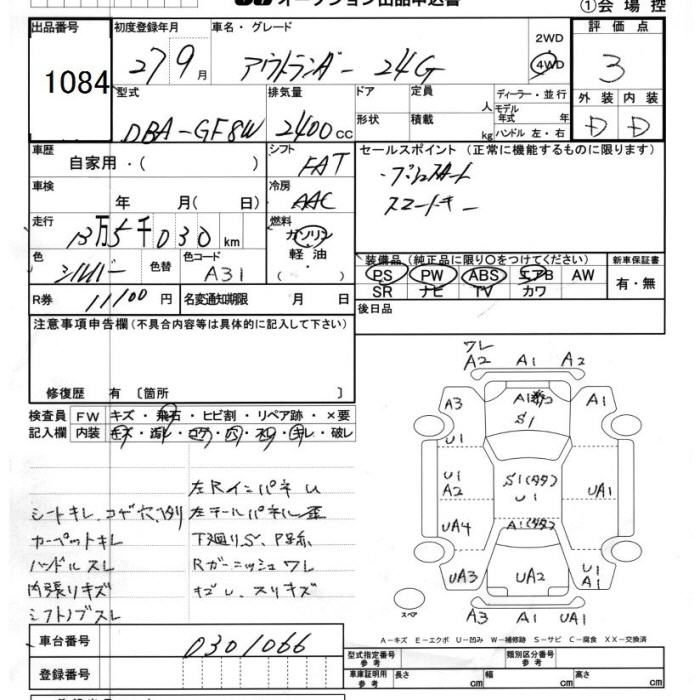 オークション出品申込書
①会場控
出品番号
1084
初度登録年月
27 9月
車名・グレード
アウトランダー 24G
2WD
4WD
評価点
3
型式
DBA-GF8W
排気量
2400 cc
ドア
形状
定員 人
積載 kg
ディーラー・並行
モデル年式 年
ハンドル 左・右
外装 内装
D D
車歴
自家用・( )
シフト
FAT
セールスポイント (正常に機能するものに限ります)
・プッシュスタート
スマートキー
車検
年 月( 日)
冷房
AAC
走行
13万5千030km
燃料
ガソリン
軽油
( ・ )
色
シルバー
色替
色コード
A31
装備品 (純正品に限り〇をつけてください)
PS PW ABS エアB AW
SR ナビ TV カワ
新車保証書
有・無
R券 11100円
名変通知期限 月 日
後日品
注意事項申告欄(不具合内容等は具体的に記入して下さい)
修復歴 有 〔箇所 〕
検査員 FW キズ・飛石・ヒビ割・リペア跡・×要
記入欄 内装 キズ・汚レ・コゲ・穴・スレ・キレ・破レ
左Rインパネ U
シートキレ、コゲ穴、汚レ
左テールパネル歪
カーペットキレ
下廻りS、
ハンドルスレ
Rガーニッシュワレ
内張りキズ
スリキズ
シフトノブスレ
ワレ
A2 A1 A2
A3
S1
A1
U1
U1
A2
S1(タタ)
U1
UA1
UA4
A1(タタ)
UA3
UA2
U1
A1
A3 UA1 A1
スペア
A-キズ E-エクボ U-凹み W-補修跡 S-サビ C-腐食 XX-交換済
車台番号
0301066
登録番号
型式指定番号
参考
類別区分番号
参考
車庫証明用
参考
長さ cm 幅 cm 高さ cm